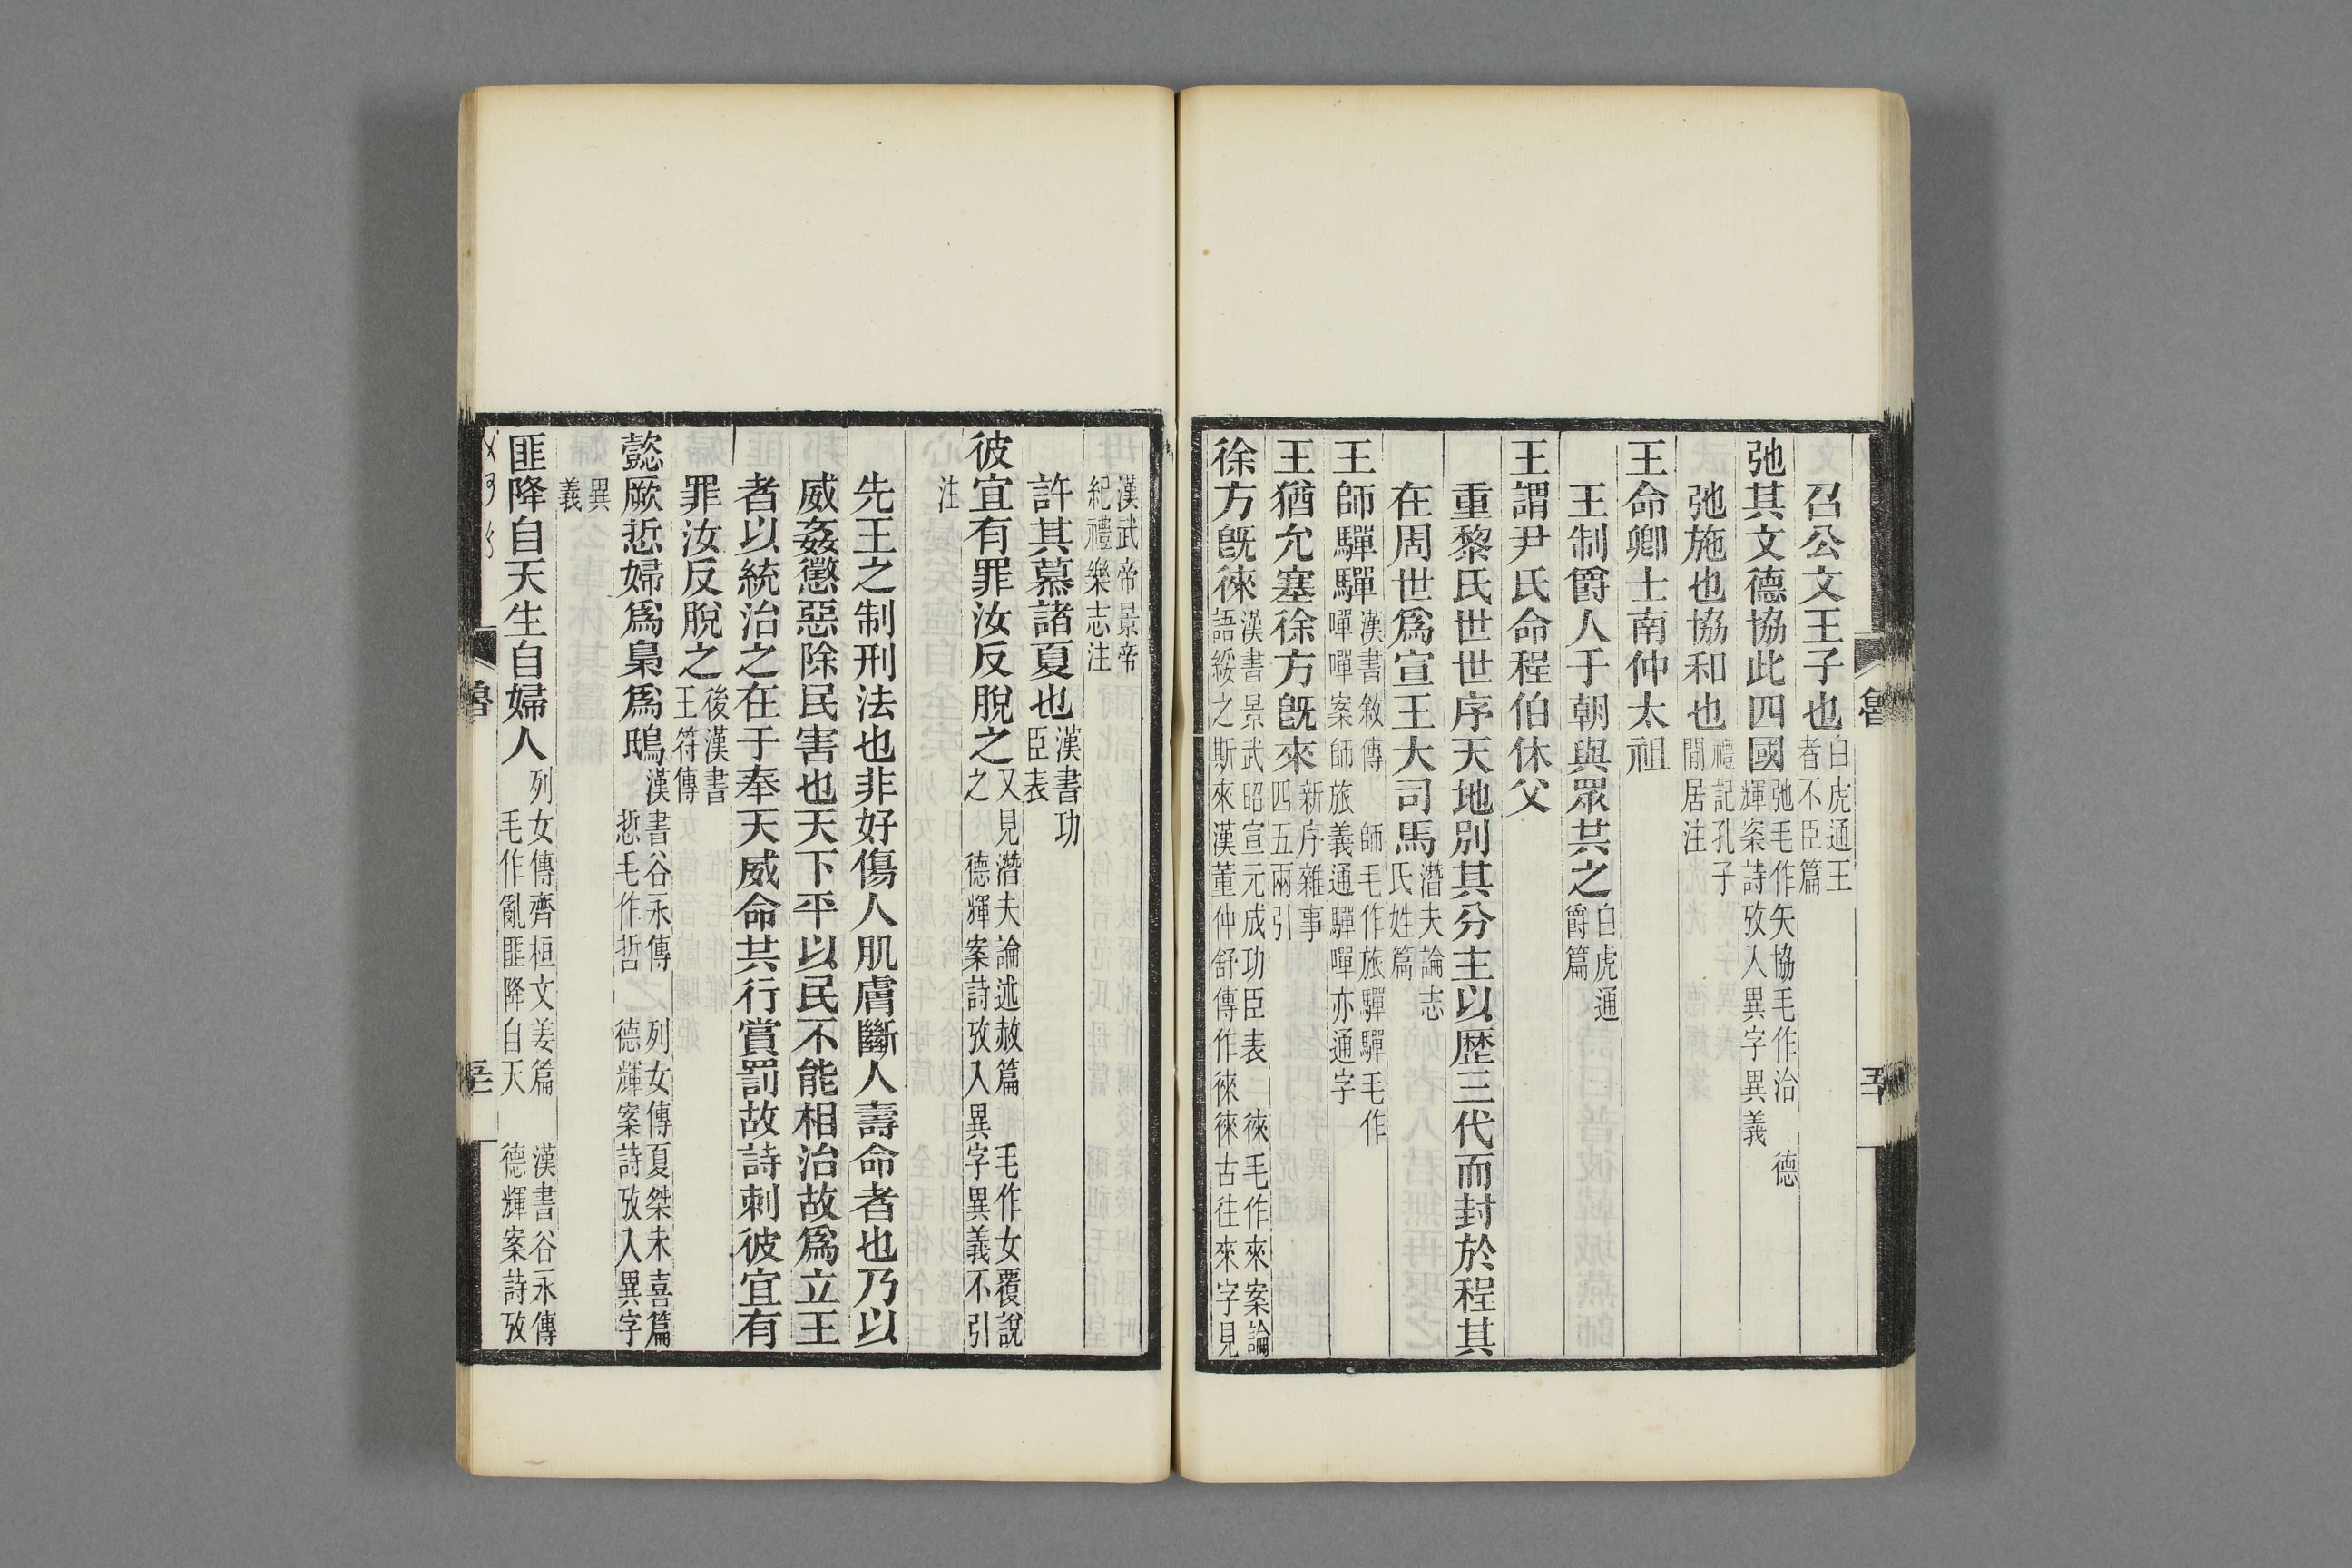 召公文王子也白虎通王者不臣篇
弛其文德協此四國弛毛作矢協毛作洽 德輝案詩攷入異字異義
弛施也協和也禮記孔子閒居注
王命卿士南仲太祖
王制爵人于朝與眾共之白虎通爵篇
王謂尹氏命程伯休父
重黎氏世世序天地別其分主以歷三代而封於程其
在周世爲宣王大司馬潛夫論志氏姓篇
王師驒驒漢書敘傳 師毛作旅驒驒毛作嘽嘽案師旅義通驒嘽亦通字
王猶允塞徐方旣來新序雜事四五兩引
徐方旣徠漢書景武昭宣元成功臣表 徠毛作來案論語綏之斯來漢董仲舒傳作徠徠古往來字見
漢武帝景帝紀禮樂志注
許其慕諸夏也漢書功臣表
彼宜有罪汝反脫之又見潛夫論述赦篇 毛作女覆說之 德輝案詩攷入異字異義不引
注
先王之制刑法也非好傷人肌膚斷人壽命者也乃以
威姦懲惡除民害也天下平以民不能相治故爲立王
者以統治之在于奉天威命共行賞罰故詩刺彼宜有
罪汝反脫之後漢書王符傳
懿厥悊婦爲梟爲鴟漢書谷永傳 列女傳夏桀末喜篇悊毛作哲 德輝案詩攷入異字
異義
匪降自天生自婦人列女傳齊桓文姜篇 漢書谷永傳毛作亂匪降自天 德輝案詩攷
魯
魯